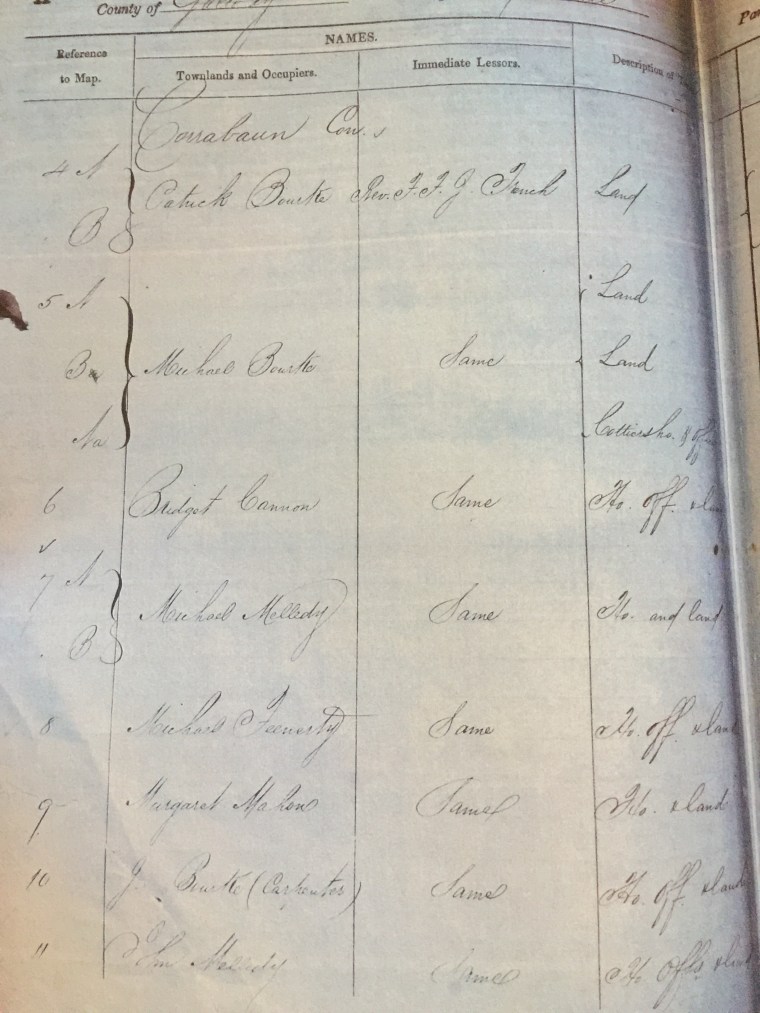 County of Galway
Reference to Map.
NAMES.
Townlands and Occupiers.
Immediate Lessors.
Description of
Corrabaun Con.
4 A
Patrick Bourke Rev. F. F. J. Trench Land
B
5 A Land
Ba Michael Bourke Same Land
Aa Cottiersho. & offi
6 Bridget Cannon Same Ho. off. & lan
7 A
Michael Melledy Same Ho. and land
B
8 Michael Feenerty Same Ho. off. & land
9 Margaret Mahon Same Ho. & land
10 J. Bourke (Carpenter) Same Ho. off. & land
11 John Melledy Same Ho. offs. & land